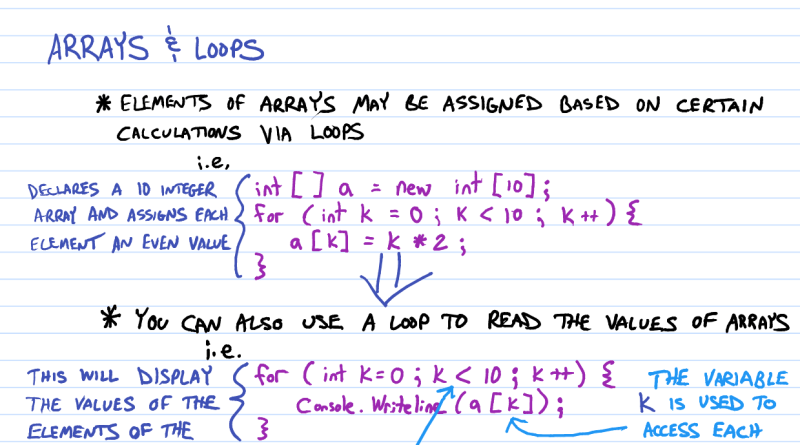 ARRAYS & LOOPS
* ELEMENTS OF ARRAYS MAY BE ASSIGNED BASED ON CERTAIN
CALCULATIONS VIA LOOPS
i.e,
DECLARES A 10 INTEGER { int [ ] a = new int [10];
ARRAY AND ASSIGNS EACH for (int k = 0 ; k < 10 ; k++) {
ELEMENT AN EVEN VALUE a [k] = k * 2 ;
}
* YOU CAN ALSO USE A LOOP TO READ THE VALUES OF ARRAYS
i.e.
THIS WILL DISPLAY { for (int k=0 ; k < 10 ; k++) { THE VARIABLE
THE VALUES OF THE Console.Writeline (a [k]); K IS USED TO
ELEMENTS OF THE } ACCESS EACH